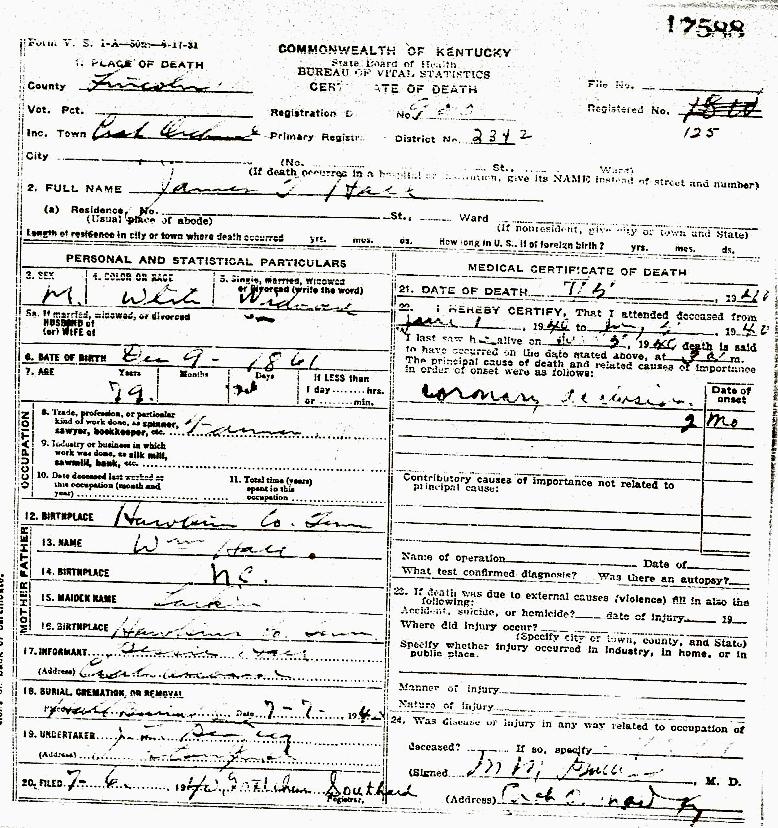 17588
Form V. S. 1-A—50m—8-17-31
COMMONWEALTH OF KENTUCKY
State Board of Health
BUREAU OF VITAL STATISTICS
CERT ATE OF DEATH
1. PLACE OF DEATH
County Lincoln
File No.
Vot. Pct. Registration D No. Registered No.
125
Inc. Town Crab Orchard Primary Registr District No. 2342
City (No. St., Ward)
(If death occurred in a hospital or institution, give its NAME instead of street and number)
2. FULL NAME James Hall
(a) Residence, No. St., Ward
(Usual place of abode) (If nonresident, give city or town and State)
Length of residence in city or town where death occurred yrs. mos. ds. How long in U. S., if of foreign birth? yrs. mos. ds.
PERSONAL AND STATISTICAL PARTICULARS
3. SEX 4. COLOR OR RACE 5. Single, married, widowed
or Divorced (write the word)
M. White Widowed
5a. If married, widowed, or divorced
HUSBAND of
(or) WIFE of
6. DATE OF BIRTH Dec 9 - 1861
7. AGE Years Months Days If LESS than
1 day hrs.
79 or min.
OCCUPATION
8. Trade, profession, or particular
kind of work done, as spinner,
sawyer, bookkeeper, etc. Farmer
9. Industry or business in which
work was done, as silk mill,
sawmill, bank, etc.
10. Date deceased last worked at
this occupation (month and
year)
11. Total time (years)
spent in this
occupation
12. BIRTHPLACE Hawkins Co. Tenn
FATHER
13. NAME Wm Hall
14. BIRTHPLACE N.C.
MOTHER
15. MAIDEN NAME Larkin
16. BIRTHPLACE Hawkins Co Tenn
17. INFORMANT Hall
(Address)
18. BURIAL, CREMATION, OR REMOVAL
Date 7-7-1940
19. UNDERTAKER
(Address)
20. FILED 7-6 1940 Gretchen Southard
Registrar.
MEDICAL CERTIFICATE OF DEATH
21. DATE OF DEATH 7-5, 1940
22. I HEREBY CERTIFY, That I attended deceased from
June 1, 1940 to 5, 1940
I last saw h alive on 5, 1940 death is said
to have occurred on the date stated above, at 3 a m.
The principal cause of death and related causes of importance
in order of onset were as follows:
Date of
onset
coronary occlusion
2 Mo
Contributory causes of importance not related to
principal cause:
Name of operation Date of
What test confirmed diagnosis? Was there an autopsy?
23. If death was due to external causes (violence) fill in also the
following:
Accident, suicide, or homicide? date of injury 19
Where did injury occur?
(Specify city or town, county, and State)
Specify whether injury occurred in industry, in home, or in
public place.
Manner of injury
Nature of injury
24. Was disease or injury in any way related to occupation of
deceased? If so, specify
(Signed M. D.
(Address) Crab Orchard Ky